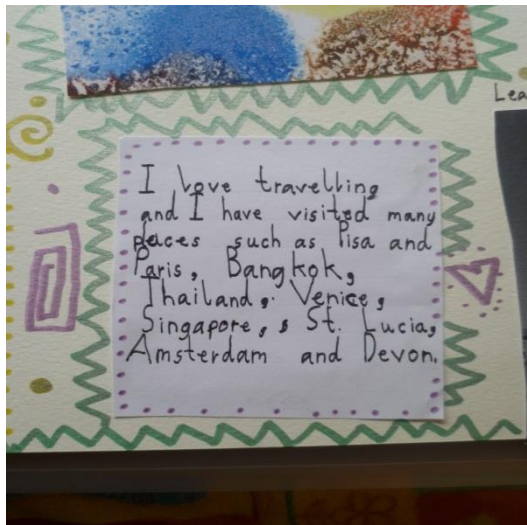 Lea
I love travelling
and I have visited many
places such as Pisa and
Paris, Bangkok,
Thailand, Venice,
Singapore, , St. Lucia,
Amsterdam and Devon.